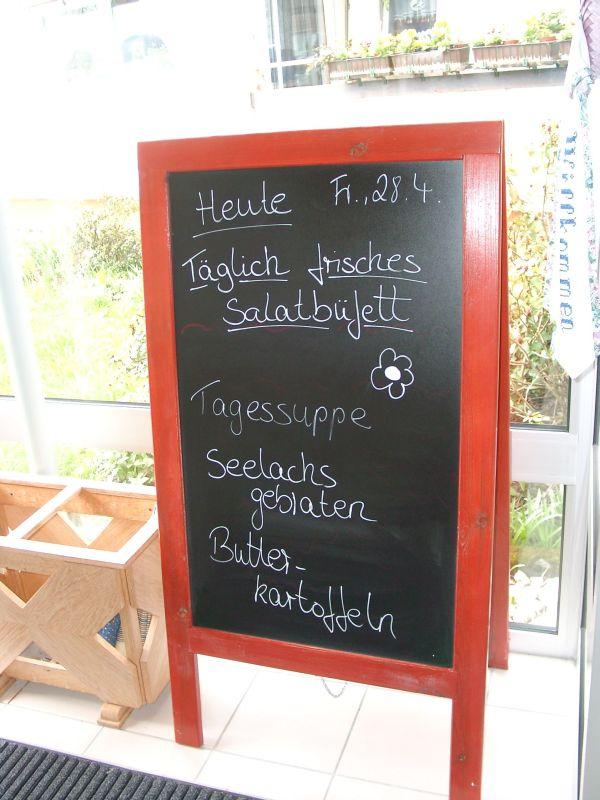 Heute Fr., 28.4.
Täglich frisches
Salatbüfett
Tagessuppe
Seelachs
gebraten
Butter-
kartoffeln
Willkommen